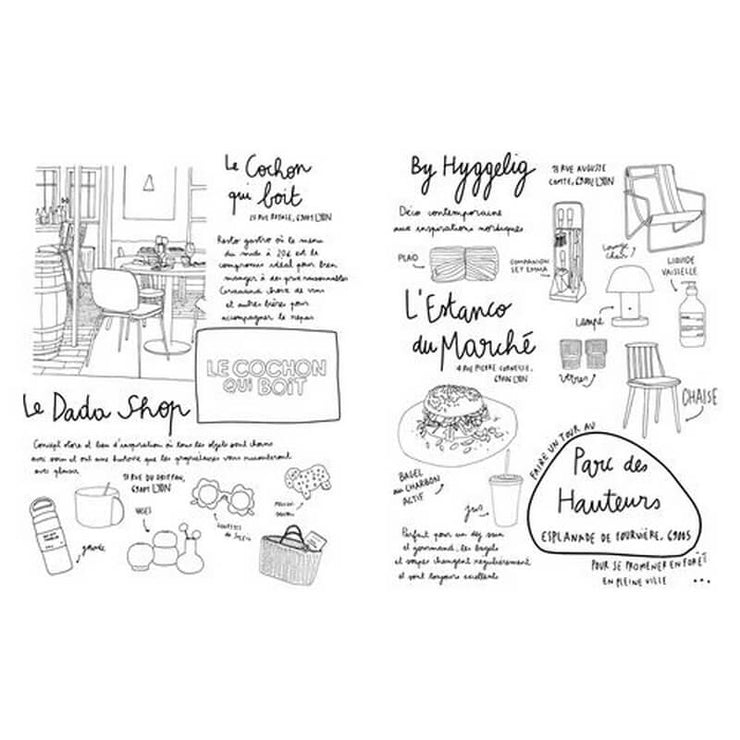 Le Cochon
qui boit
23 RUE ROYALE, 69001 LYON
Resto gastro où le menu
du midi à 20€ est le
compromis idéal pour bien
manger à des prix raisonnables
et autres bières pour
accompagner le repas
LE COCHON
QUI BOIT
Le Dada Shop
Concept store et lieu d'inspiration où tous les objets sont choisis
avec soin et ont une histoire que les propriétaires vous raconteront
avec plaisir
RUE DU GRIFFON,
69001 LYON
VASES
gourde
LUNETTES
DE SOLEIL
By Hyggelig
RUE AUGUSTE
COMTE, 69002 LYON
Déco contemporaine
aux inspirations nordiques
PLAID
COMPANION
SET EMMA
Lounge
chair
LIQUIDE
VAISSELLE
Lampe
verres
CHAISE
L'Estanco
du Marché
4 RUE PIERRE CORNEILLE,
LYON
BAGEL
AU CHARBON
ACTIF
jus
Parfait pour un déj sain
et gourmand, les bagels
et soupes changent régulièrement
et sont toujours excellents
FAIRE UN TOUR AU
Parc des
Hauteurs
ESPLANADE DE FOURVIÈRE, 69005
POUR SE PROMENER EN FORÊT
EN PLEINE VILLE ...